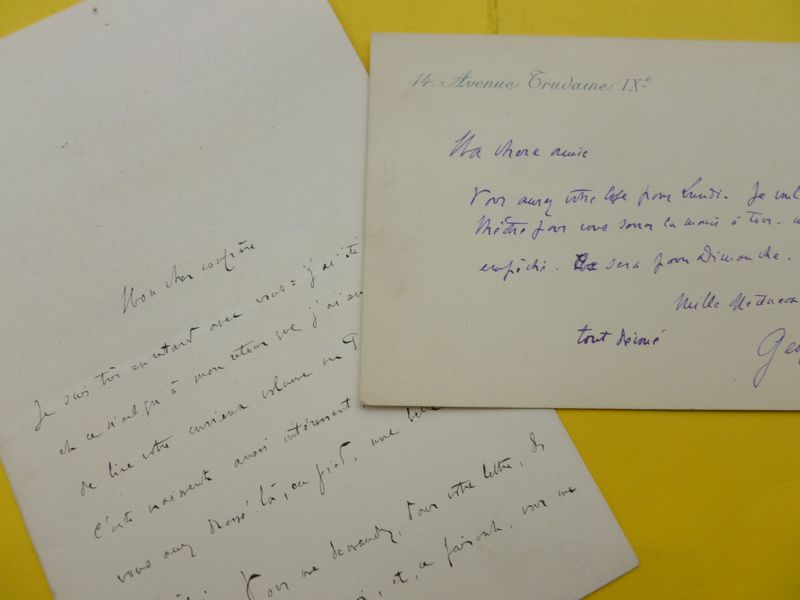 Mon cher confrère
Je suis très en retard avec vous : j'ai été
et ce n'est qu'à mon retour que j'ai
de lire votre curieux volume sur
C'est vraiment aussi intéressant
vous avez dressé là, au pied, une
Vous me demandez, dans votre lettre, de
et, ce faisant, vous me
14. Avenue Trudaine, IXe
Ma chère amie
Vous aurez votre loge pour Lundi. Je
théâtre pour vous serrer la main à tous.
empêché. Ce sera pour Dimanche.
Mille
tout dévoué